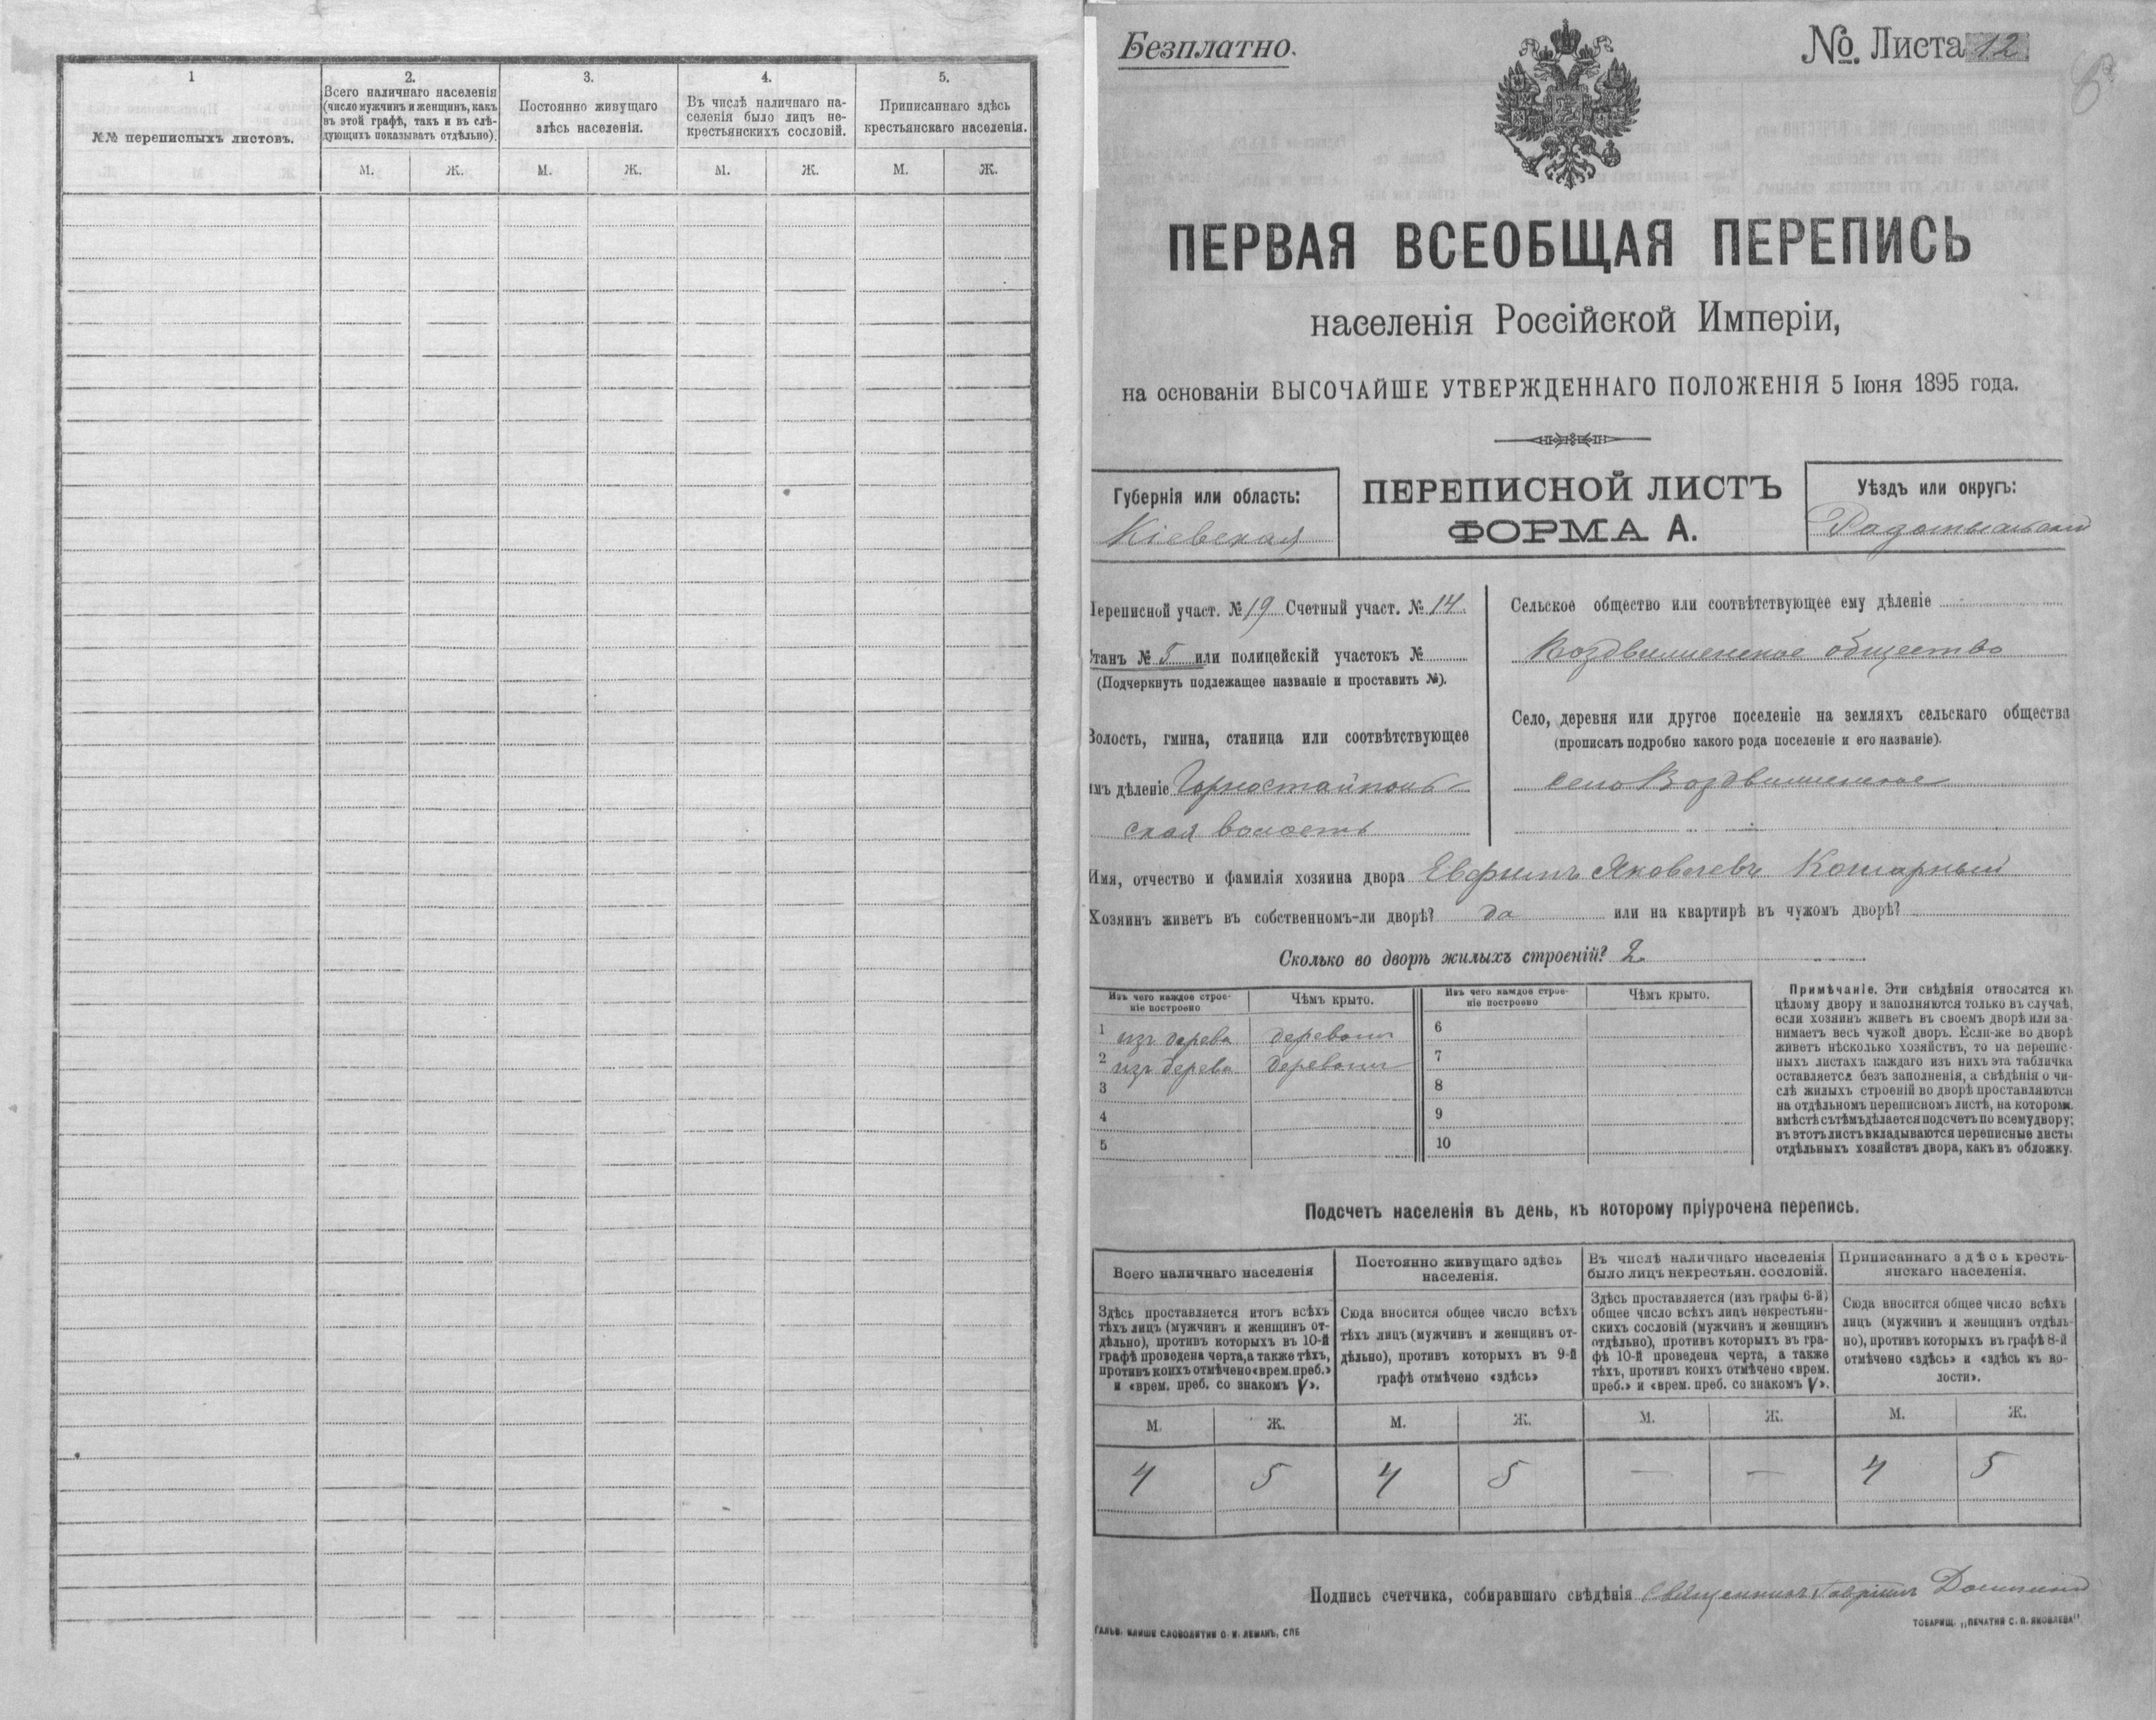 1
№№ переписныхъ листовъ.
2.
Всего наличнаго населенія
(число мужчинъ и женщинъ, какъ
въ этой графѣ, такъ и въ слѣ-
дующихъ показывать отдѣльно).
3.
Постоянно живущаго
здѣсь населенія.
4.
Въ числѣ наличнаго на-
селенія было лицъ не-
крестьянскихъ сословій.
5.
Приписаннаго здѣсь
крестьянскаго населенія.
М. Ж. М. Ж. М. Ж. М. Ж.
Безплатно.
№. Листа 12
ПЕРВАЯ ВСЕОБЩАЯ ПЕРЕПИСЬ
населенія Россійской Имперіи,
на основаніи ВЫСОЧАЙШЕ УТВЕРЖДЕННАГО ПОЛОЖЕНІЯ 5 Іюня 1895 года.
Губернія или область:
Кіевская
ПЕРЕПИСНОЙ ЛИСТЪ
ФОРМА А.
Уѣздъ или округъ:
Радомысльскій
Переписной участ. № 19 Счетный участ. № 14
Станъ № 5 или полицейскій участокъ №
(Подчеркнуть подлежащее названіе и проставить №).
Волость, гмина, станица или соотвѣтствующее
имъ дѣленіе Горностайполь-
ская волость
Сельское общество или соотвѣтствующее ему дѣленіе
Воздвиженское общество
Село, деревня или другое поселеніе на земляхъ сельскаго общества
(прописать подробно какого рода поселеніе и его названіе).
село Воздвиженское
Имя, отчество и фамилія хозяина двора Евфимъ Яковлевъ Кошарный
Хозяинъ живетъ въ собственномъ-ли дворѣ? да или на квартирѣ въ чужомъ дворѣ?
Сколько во дворѣ жилыхъ строеній? 2
Изъ чего каждое строе-
ніе построено
Чѣмъ крыто.
Изъ чего каждое строе-
ніе построено
Чѣмъ крыто.
1 изъ дерева деревомъ 6
2 изъ дерева деревомъ 7
3 8
4 9
5 10
Примѣчаніе. Эти свѣдѣнія относятся къ
цѣлому двору и заполняются только въ случаѣ,
если хозяинъ живетъ въ своемъ дворѣ или за-
нимаетъ весь чужой дворъ. Если-же во дворѣ
живетъ нѣсколько хозяйствъ, то на перепис-
ныхъ листахъ каждаго изъ нихъ эта табличка
оставляется безъ заполненія, а свѣдѣнія о чи-
слѣ жилыхъ строеній во дворѣ проставляются
на отдѣльномъ переписномъ листѣ, на которомъ
вмѣстѣ съ тѣмъ дѣлается подсчетъ по всему двору;
въ этотъ листъ вкладываются переписные листы
отдѣльныхъ хозяйствъ двора, какъ въ обложку.
Подсчетъ населенія въ день, къ которому пріурочена перепись.
Всего наличнаго населенія
Здѣсь проставляется итогъ всѣхъ
тѣхъ лицъ (мужчинъ и женщинъ от-
дѣльно), противъ которыхъ въ 10-й
графѣ проведена черта, а также тѣхъ,
противъ коихъ отмѣчено «врем. преб.»
и «врем. преб. со знакомъ V».
Постоянно живущаго здѣсь
населенія.
Сюда вносится общее число всѣхъ
тѣхъ лицъ (мужчинъ и женщинъ от-
дѣльно), противъ которыхъ въ 9-й
графѣ отмѣчено «здѣсь»
Въ числѣ наличнаго населенія
было лицъ некрестьян. сословій.
Здѣсь проставляется (изъ графы 6-й)
общее число всѣхъ лицъ некрестьян-
скихъ сословій (мужчинъ и женщинъ
отдѣльно), противъ которыхъ въ гра-
фѣ 10-й проведена черта, а также
тѣхъ, противъ коихъ отмѣчено «врем.
преб.» и «врем. преб. со знакомъ V».
Приписаннаго здѣсь кресть-
янскаго населенія.
Сюда вносится общее число всѣхъ
лицъ (мужчинъ и женщинъ отдѣль-
но), противъ которыхъ въ графѣ 8-й
отмѣчено «здѣсь» и «здѣсь къ во-
лости».
М. Ж. М. Ж. М. Ж. М. Ж.
4 5 4 5 — — 4 5
Подпись счетчика, собиравшаго свѣдѣнія Священникъ Гавріилъ
ГАЛЬВ. КЛИШЕ СЛОВОЛИТНИ О. И. ЛЕМАНЪ, СПБ
ТОВАРИЩ. „ПЕЧАТНЯ С. П. ЯКОВЛЕВА".